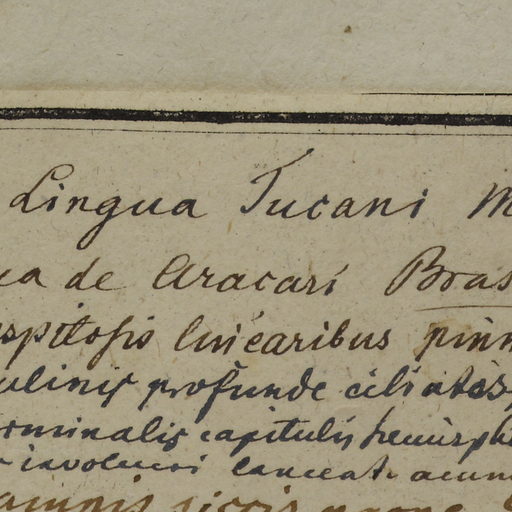 Lingua Tucani M
ua de Aracari Bras
spitosis linearibus pinn
ulinis profunde ciliatis
rminalis capitulis hemisph
involucri lanceat. acum
siccis